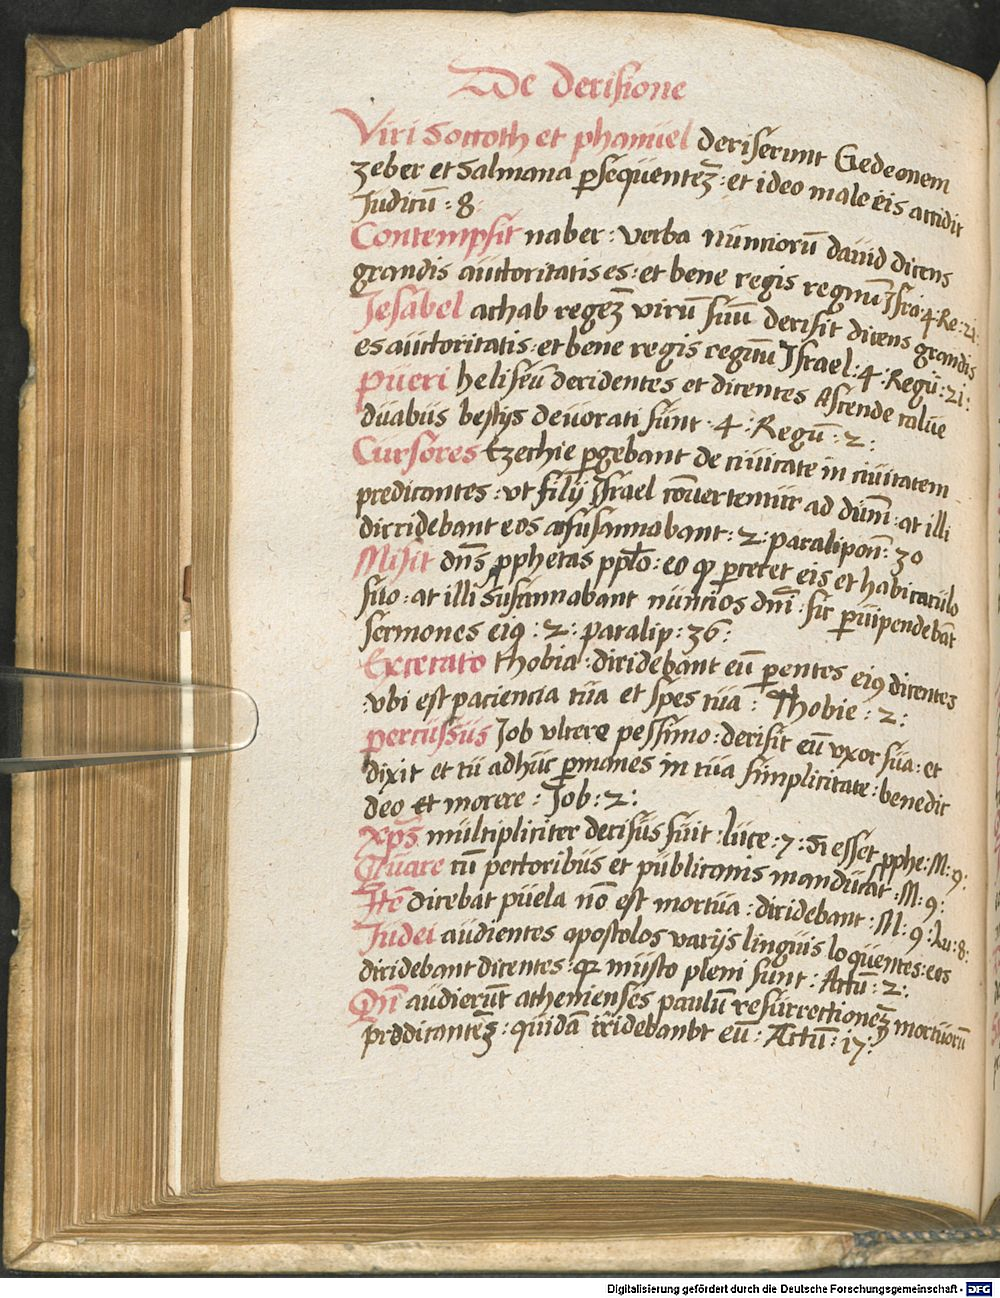 De derisione
Viri Soccoth et phanuel deriserunt Gedeonem
zeber et Salmana ꝑseqūentēʒ : et ideo male eis accidit
Judicū : 8
Contempsit naber : verba nūnciorū dauid dicens
grandis aūctoritatis es : et bene regis regnū Jsra : 4 : Re : 21 :
Jesabel achab regeʒ virū sūū derisit dicens grandis
es aūctoritatis : et bene regis regnū Jsrael : 4 : Regū : 21 :
pūeri heliseū deridentes et dicentes Ascende calūe
dūabūs bestijs deūorati sūnt : 4 : Regū : 2 :
Cursores Ezechie ꝑgebant de ciūitate in ciūitatem
predicantes : vt filij Jsrael conūertentūr ad dūm̄ : at illi
dirridebant eos ac sūsannabant : 2 : paralipon̄ : 30
Misit dn̄s ꝓphetas pplo : eo ꝙ ꝑceret eis et habitacūlo
sūo : at illi sūsannabant nūncios dn̄i : sic ꝑūipendebāt
sermones eiꝯ : 2 : paralip : 36 :
Excecato thobia : diridebant eū ꝑentes eiꝯ dicentes
vbi est paciencia tūa et spes tūa : Thobie : 2 :
percūssūs Job vlcere pessimo : derisit eū vxor sūa : et
dixit et tū adhūc ꝑmanes in tūa simplicitate : benedic
deo et morere : Job : 2 :
Xp̄s mūltipliciter derisūs fūit : lūce : 7 : Si esset ꝓphe : M : 9 :
Qūare cū peccoribūs et pūblicanis mandūcat : M : 9 :
Itē dicebat pūela nō est mortūa : diridebant : M : 9 : lu : 8 :
Jūdei aūdientes apostolos varijs lingūis loqūentes : eos
diridebant dicentes : qꝛ mūsto pleni sūnt : Actū : 2 :
Qn̄ aūdierūt athenienses paulū resūrrectioneʒ mortūorū
predicantēʒ : qūidā irridebanbt eū : Actū : 17 :
Digitalisierung gefördert durch die Deutsche Forschungsgemeinschaft - DFG